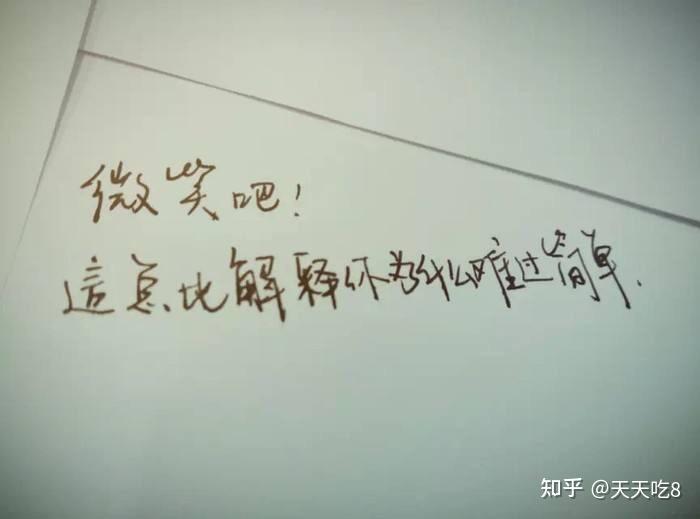 微笑吧!
這总比解释你为什么难过简单.
知乎 @天天吃8